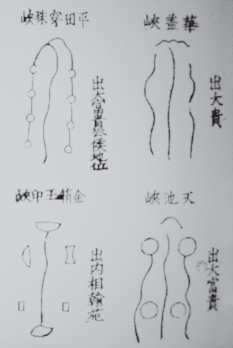 華蓋峽
出大貴
平田穿珠峽
出大富貴公侯地位
天池峽
出大富貴
金箱玉印峽
出內相翰苑